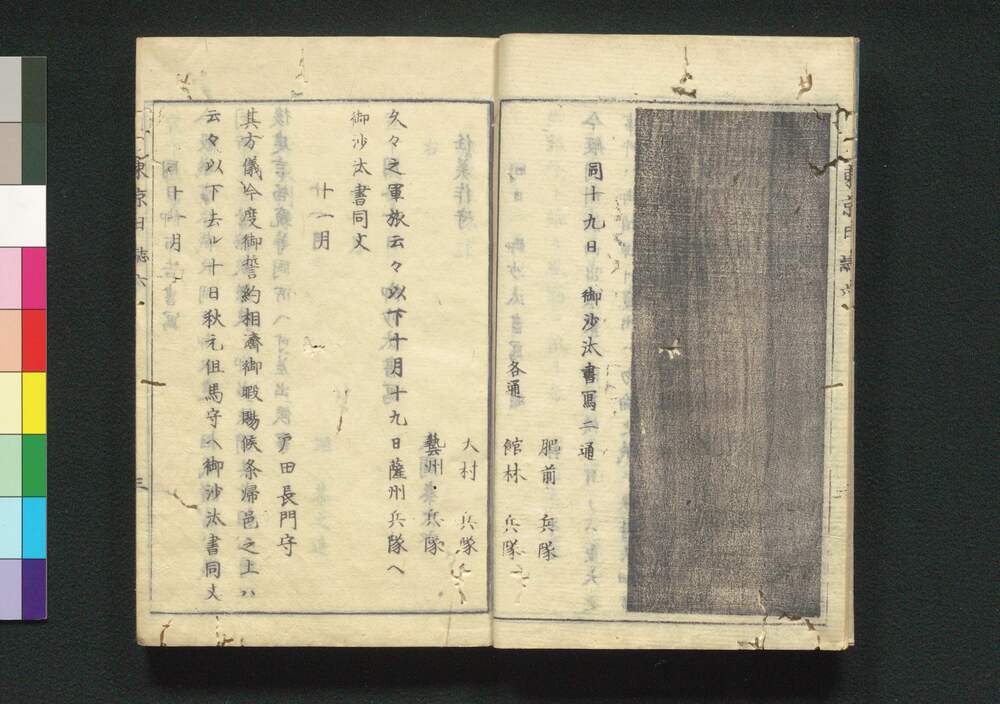 東京日誌六
同十九日御沙汰書寫二通
肥前 兵隊
各通 館林 兵隊
大村 兵隊
藝州 兵隊
久々之軍旅云々以下十月十九日薩州兵隊へ
御沙汰書同文
十一月
戸田長門守
其方儀今度御誓約相濟御暇賜候条帰邑之上ハ
云々以下去ル十日秋元但馬守へ御沙汰書同文
十一月
東京日誌六
三